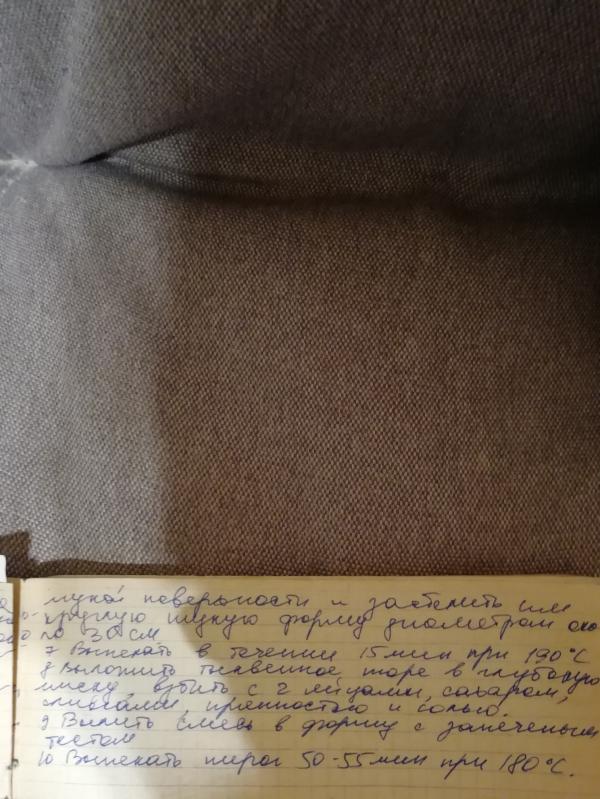 мукой поверхности и застелить им
круглую нужную форму диаметром око
ло 30 см
7 Выпекать в течении 15 мин при 190°С
8 Выложить тыквенное пюре в глубокую
миску, взбить с 2 яйцами, сахаром,
сливками, пряностью и солью.
9 Вылить смесь в форму с запеченым
тестом
10 Выпекать пирог 50-55 мин при 180°С.